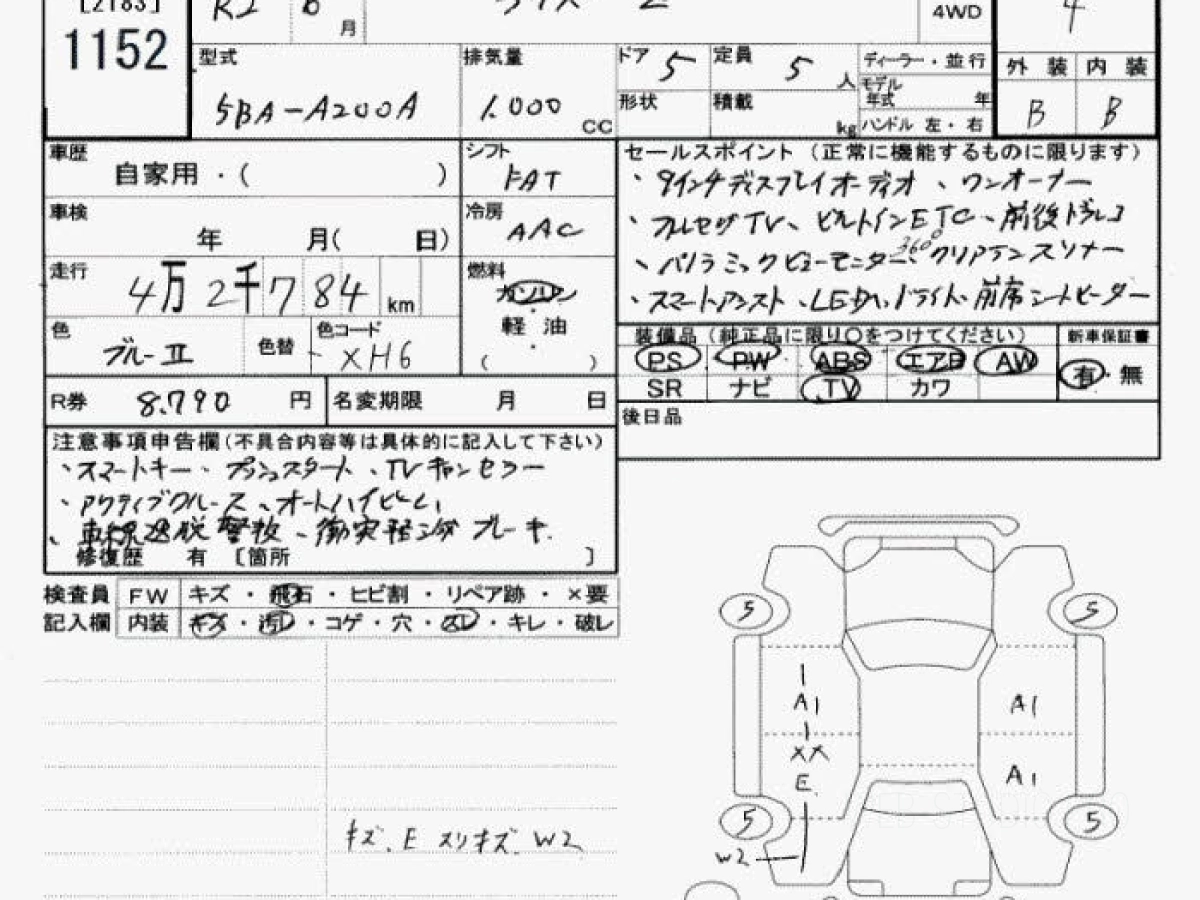 [2183]
1152
R2 6 月
4WD
4
型式
5BA-A200A
排気量
1.000 CC
ドア 5
定員 5 人
形状
積載 kg
ディーラー・並行
モデル年式 年
ハンドル 左・右
外装 内装
B B
車歴
自家用・( )
シフト
FAT
車検
年 月( 日)
冷房
AAC
走行
4万2千784 km
燃料
ガソリン
軽油
( )
色
ブルーII
色替
色コード
XH6
R券 8.790 円
名変期限 月 日
セールスポイント (正常に機能するものに限ります)
・9インチディスプレイオーディオ、ワンオーナー
・フルセグTV、ビルトインETC、前後ドラレコ
・パノラミックビューモニター、360°クリアランスソナー
・スマートアシスト、LEDヘッドライト、前席シートヒーター
装備品 (純正品に限り○をつけてください)
新車保証書
PS PW ABS エアB AW
SR ナビ TV カワ
有・無
後日品
注意事項申告欄(不具合内容等は具体的に記入して下さい)
・スマートキー、プッシュスタート、TVキャンセラー
・アクティブクルーズ、オートハイビーム
・車線逸脱警報、衝突軽減ブレーキ
修復歴 有 [箇所 ]
検査員 FW キズ・飛石・ヒビ割・リペア跡・×要
記入欄 内装 キズ・汚レ・コゲ・穴・スレ・キレ・破レ
5 5
A1 A1
XX
E A1
5 5
W2
キズ.E スリキズ.W2